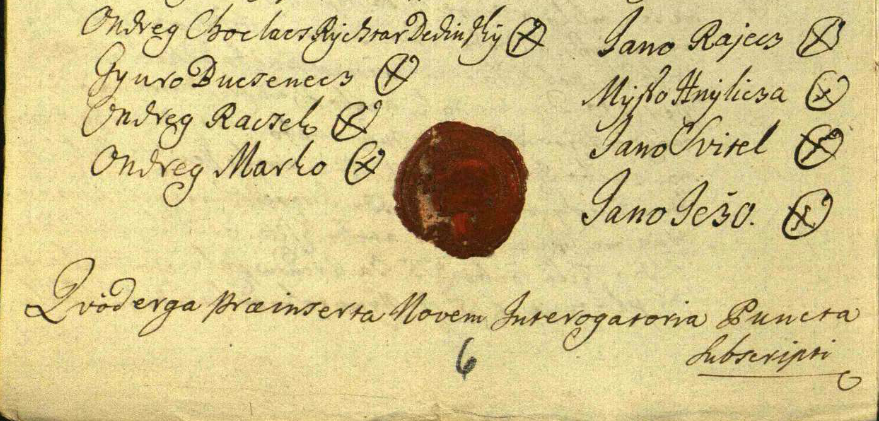 Ondreg Choclacs Rychtar Dedinsky
Gyuro Bucsenecs
Ondreg Racsek
Ondreg Marko
Jano Rajecs
Jano Svitel
Jano Ježo.
Qvöd erga præinserta Novem Interogatoria Puncta
Subscripti
6